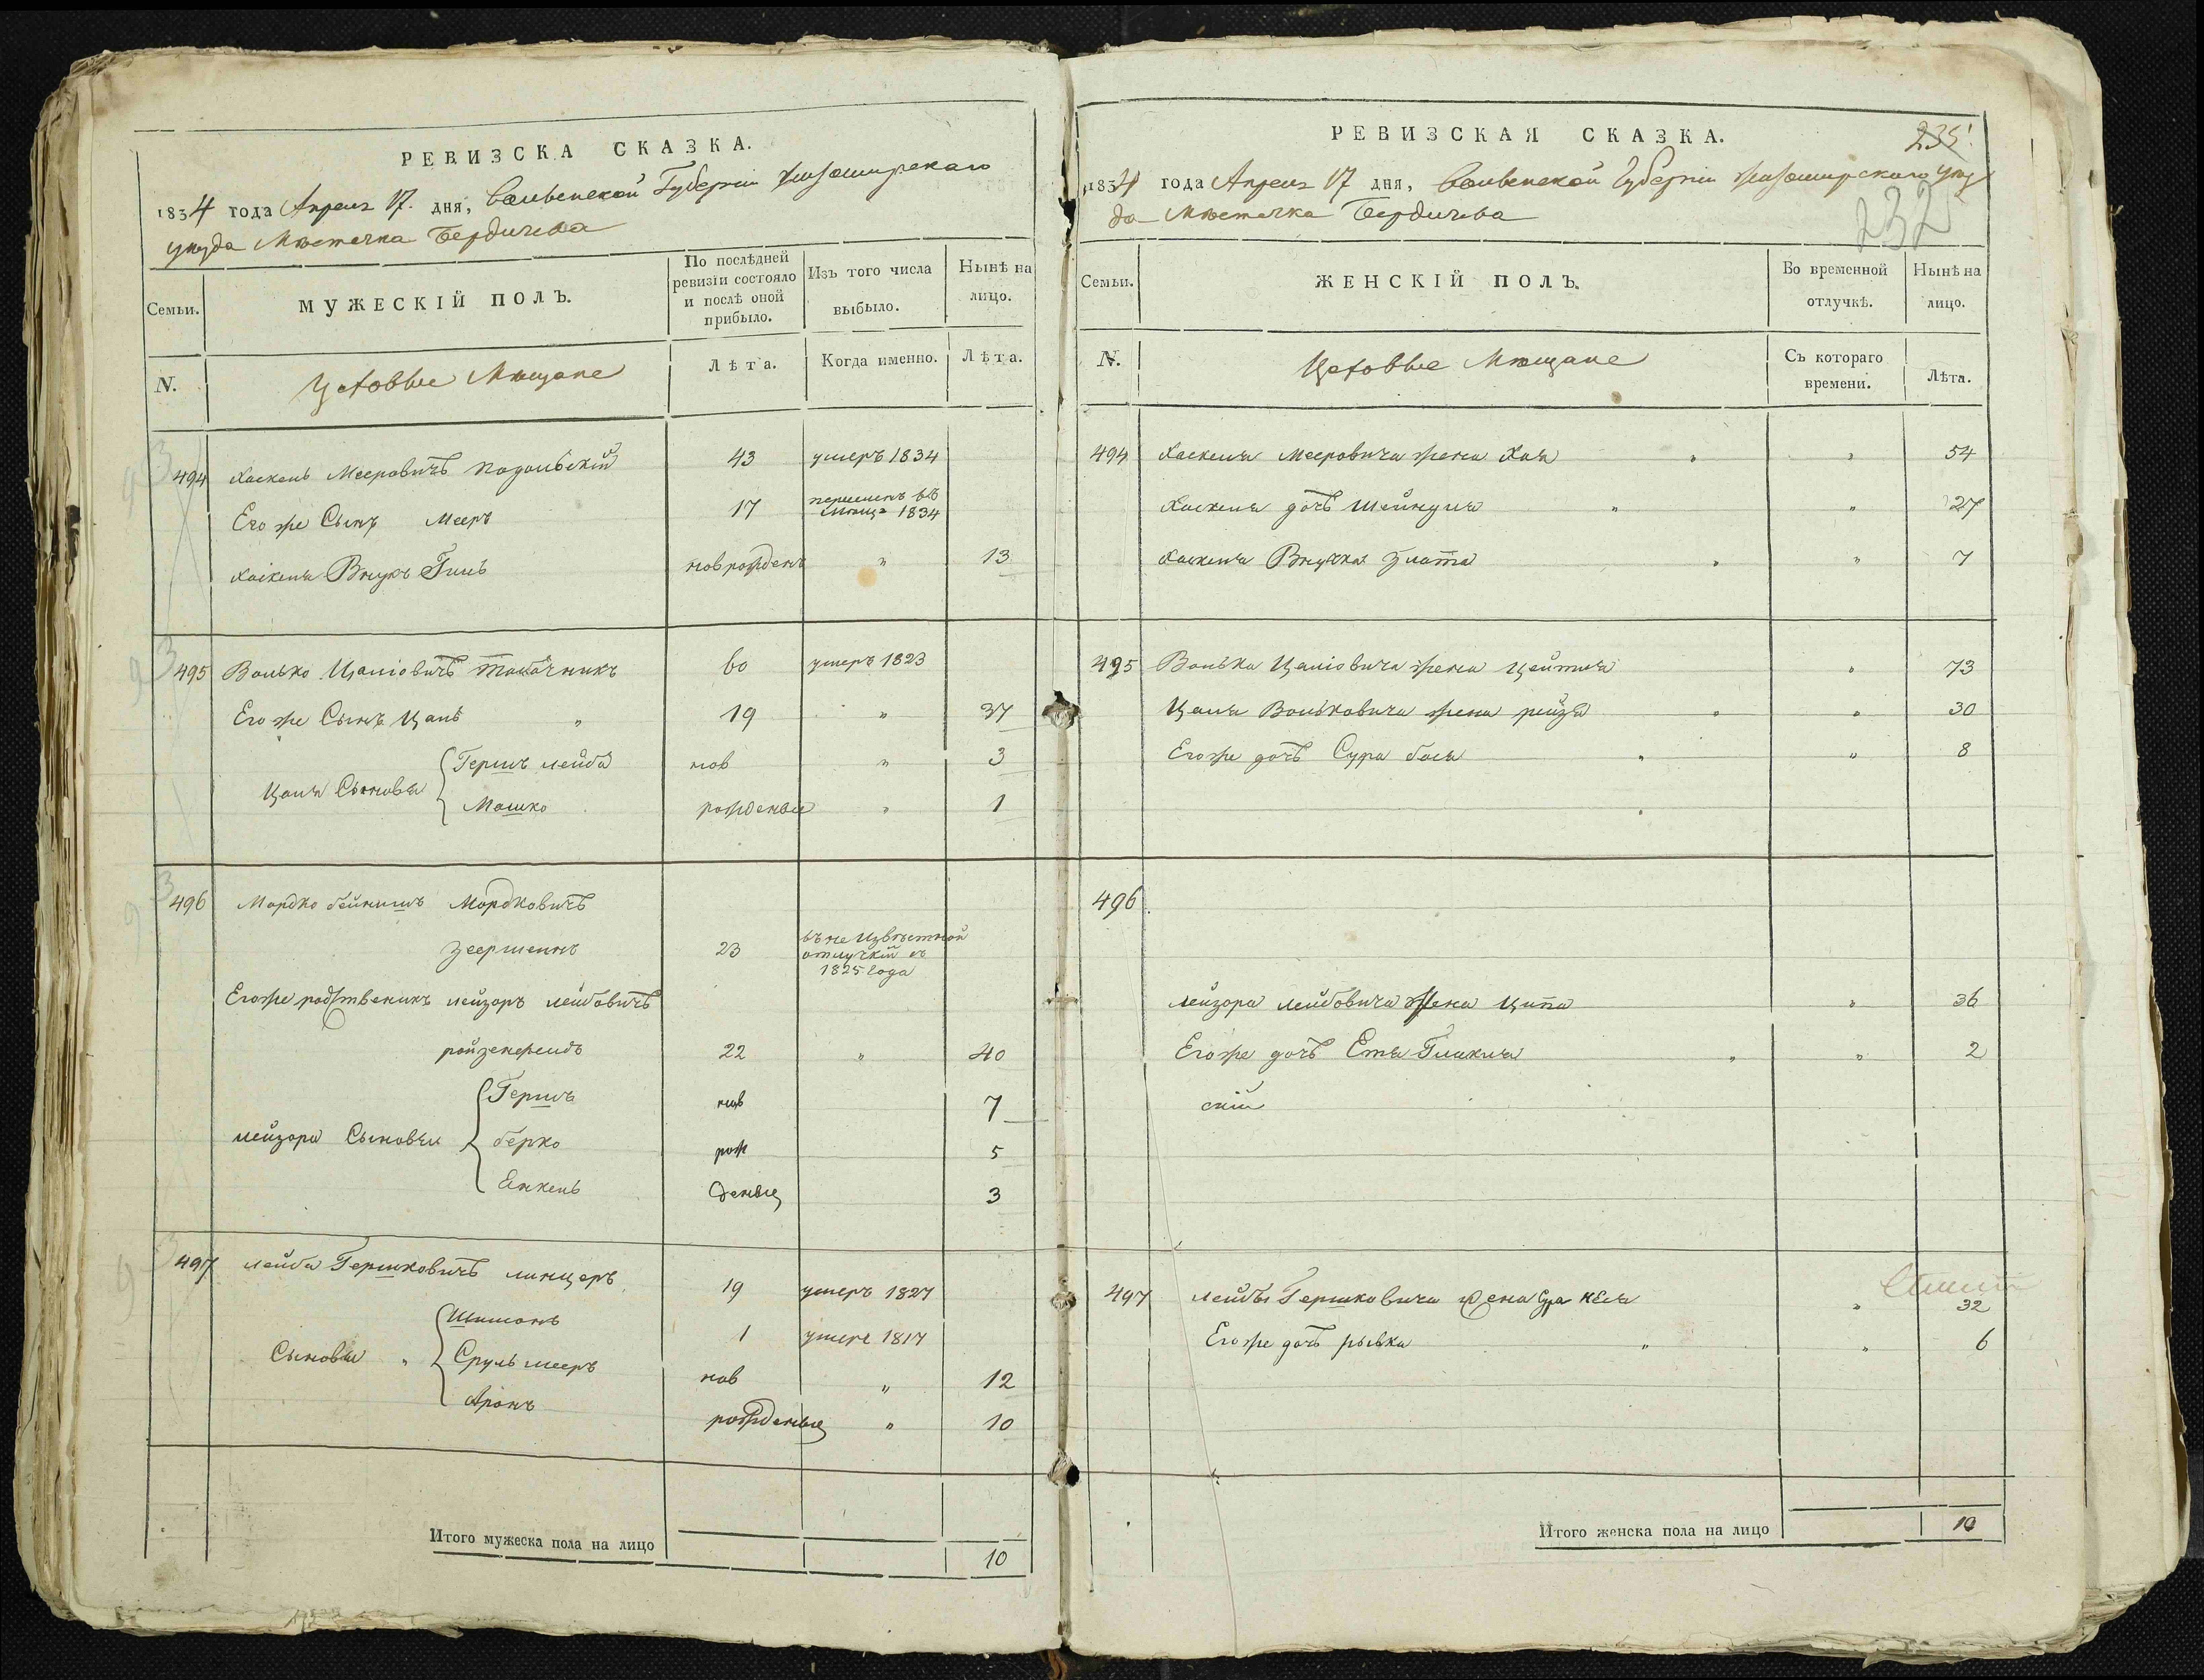 РЕВИЗСКА СКАЗКА.
1834 года Апреля 17. дня, Волынской Губернии Житомирскаго
уезда Местечка Бердичева
Семьи.
МУЖЕСКІЙ ПОЛЪ.
По послѣдней ревизіи состояло и послѣ оной прибыло.
Изъ того числа выбыло.
Нынѣ на лицо.
N.
Цеховые Мещане
Лѣта.
Когда именно.
Лѣта.
494 Хаскель Мееровичъ Подольскій 43 умеръ 1834
Его же Сынъ Мееръ 17 1834
Хаскеля Внукъ новрожденъ " 13
495 Волько Цаліовичъ Табачникъ 60 умеръ 1823
Его же Сынъ Цаль " 19 " 37
Цаля Сыновья Гершъ лейба нов " 3
Мошко рожденые " 1
496 Мордко бейнишъ Мордковичъ
23 въ не известной отлучкіи съ 1825 года
Егоже родственикъ лейзоръ лейбовичъ
ройзенфельдъ 22 " 40
лейзора Сыновьи Гершъ нов 7
берко рож 5
Янкель деные 3
497 лейба Гершковичъ линцеръ 19 умеръ 1827
Сыновьи " Шимонъ 1 умеръ 1817
Сруль мееръ нов " 12
Аронъ рожденые " 10
Итого мужеска пола на лицо 10
РЕВИЗСКАЯ СКАЗКА.
235
1834 года Апреля 17 дня, Волынской Губернии Житомирскаго уез
да Местечка Бердичева
232
Семьи.
ЖЕНСКІЙ ПОЛЪ.
Во временной отлучкѣ.
Нынѣ на лицо.
N.
Цеховые Мещане
Съ котораго времени.
Лѣта.
494 Хаскеля Мееровича жена Хая " " 54
Хаскеля дочъ Шейндля " " 27
Хаскеля Внучка Злата " " 7
495 Волька Цаліовича жена Цейтля " 73
Цаля Вольковича жена рейзя " " 30
Егоже дочъ Сура бася " " 8
496
лейзора лейбовича жена Ципа " 36
Егоже дочъ Етя " " 2
497 лейбы Гершковича жена Сура " 32
Егоже дочъ рывка " " 6
Итого женска пола на лицо 10